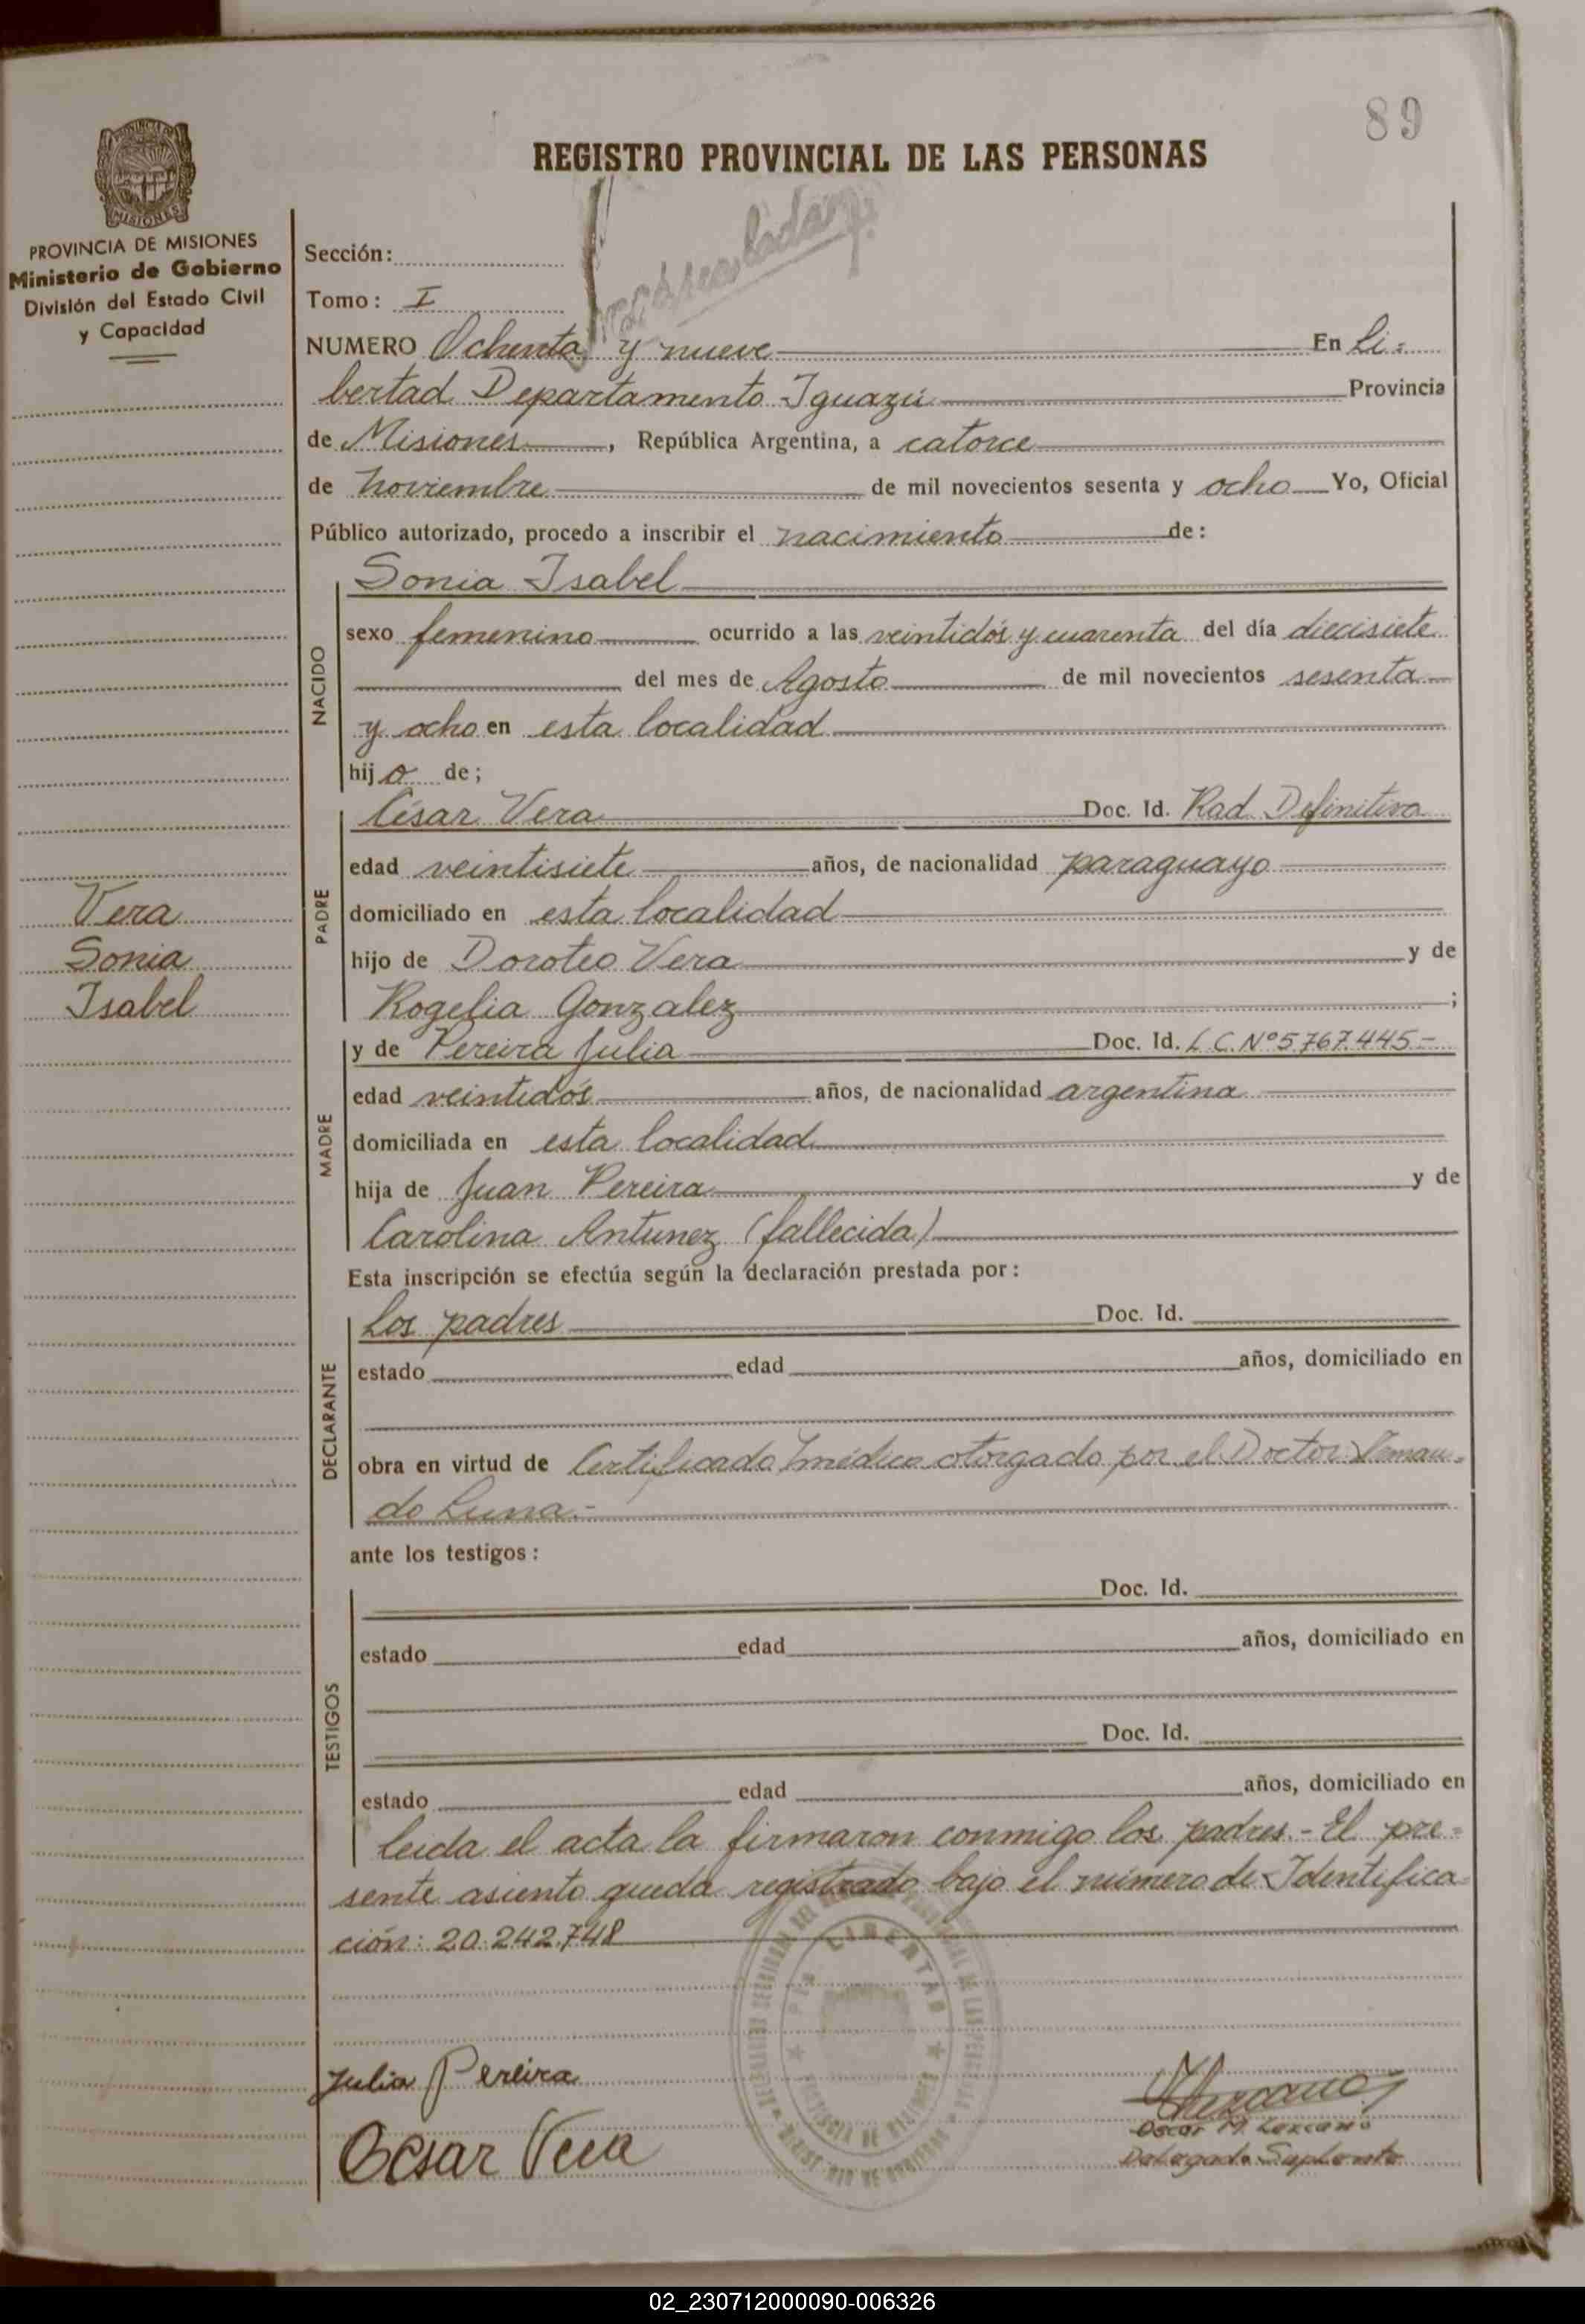 89
REGISTRO PROVINCIAL DE LAS PERSONAS
MISIONES
PROVINCIA DE MISIONES
Ministerio de Gobierno
División del Estado Civil
y Capacidad
Sección:
Tomo: I
NUMERO Ochenta y nueve En Li=
bertad Departamento Iguazú Provincia
de Misiones, República Argentina, a catorce
de noviembre de mil novecientos sesenta y ocho Yo, Oficial
Público autorizado, procedo a inscribir el nacimiento de:
NACIDO
Sonia Isabel
sexo femenino ocurrido a las veintidós y cuarenta del día diecisiete
del mes de Agosto de mil novecientos sesenta
y ocho en esta localidad
hij a de;
PADRE
César Vera Doc. Id. Rad. Definitiva
edad veintisiete años, de nacionalidad paraguayo
domiciliado en esta localidad
hijo de Doroteo Vera y de
Rogelia Gonzalez ;
Vera
Sonia
Isabel
MADRE
y de Pereira Julia Doc. Id. L.C. Nº 5.767.445-
edad veintidós años, de nacionalidad argentina
domiciliada en esta localidad
hija de Juan Pereira y de
Carolina Antunez (fallecida)
Esta inscripción se efectúa según la declaración prestada por:
DECLARANTE
Los padres Doc. Id.
estado edad años, domiciliado en
obra en virtud de Certificado médico otorgado por el Doctor
do Luna.-
ante los testigos:
TESTIGOS
Doc. Id.
estado edad años, domiciliado en
Doc. Id.
estado edad años, domiciliado en
Leida el acta la firmaron conmigo los padres.- El pre=
sente asiento queda registrado bajo el número de Identifica
ción: 20.242.748
LIBERTAD
PROVINCIA DE MISIONES
Julia Pereira
Cesar Vera
Oscar M. Lezcano
Delegado Suplente
02_230712000090-006326